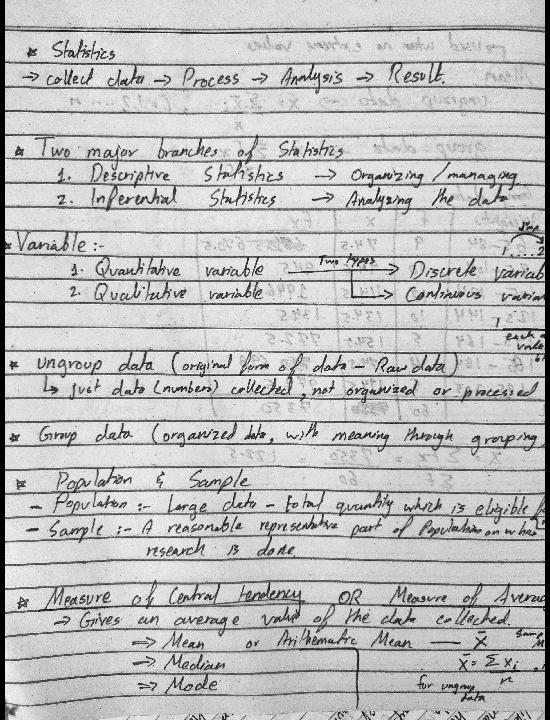 * Statistics
→ collect data → Process → Analysis → Result.
* Two major branches of Statistics
1. Descriptive Statistics → Organizing / managing
2. Inferential Statistics → Analyzing the data
* Variable :-
1. Quantitative variable Two types → Discrete variab
2. Qualitative variable → Continuous varia
* ungroup data (original form of data - Raw data)
↳ just data (numbers) collected, not organized or processed
* Group data (organized data, with meaning through grouping
* Population & Sample
- Population :- Large data - total quantity which is eligible f
- Sample :- A reasonable representative part of Population on whi
research is done.
* Measure of Central tendency OR Measure of Averag
→ Gives an average value of the data collected.
⇒ Mean or Arithematric Mean — X̄
⇒ Median X̄ = Σ xi / n
⇒ Mode for ungroup data